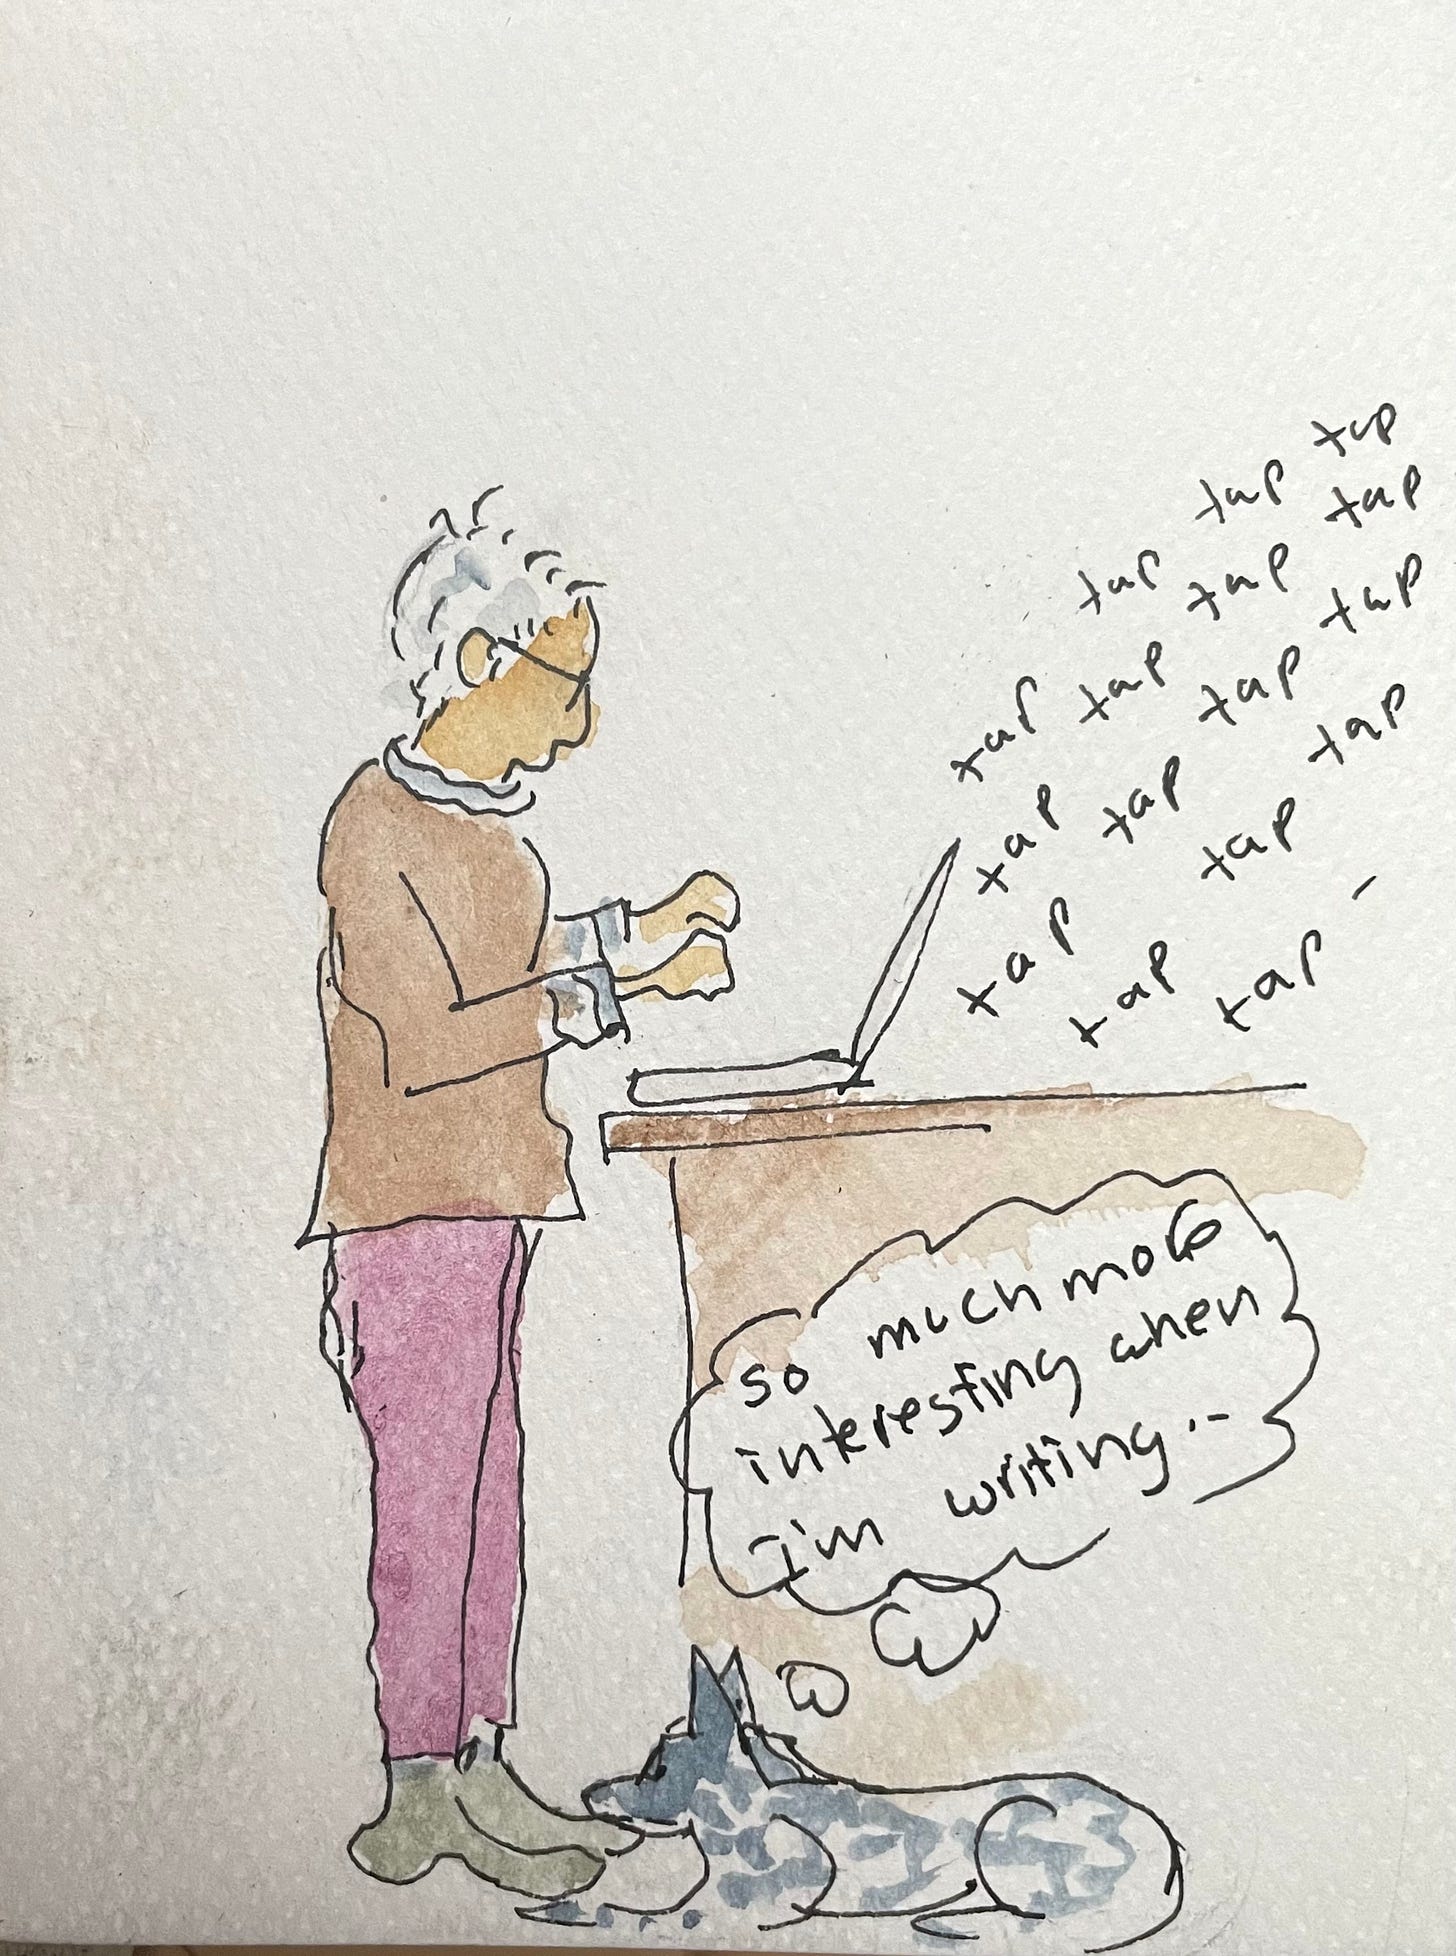 tap tap tap tap
tap tap tap tap
tap tap tap tap
tap tap tap
tap -
so much more
interesting when
I'm writing...